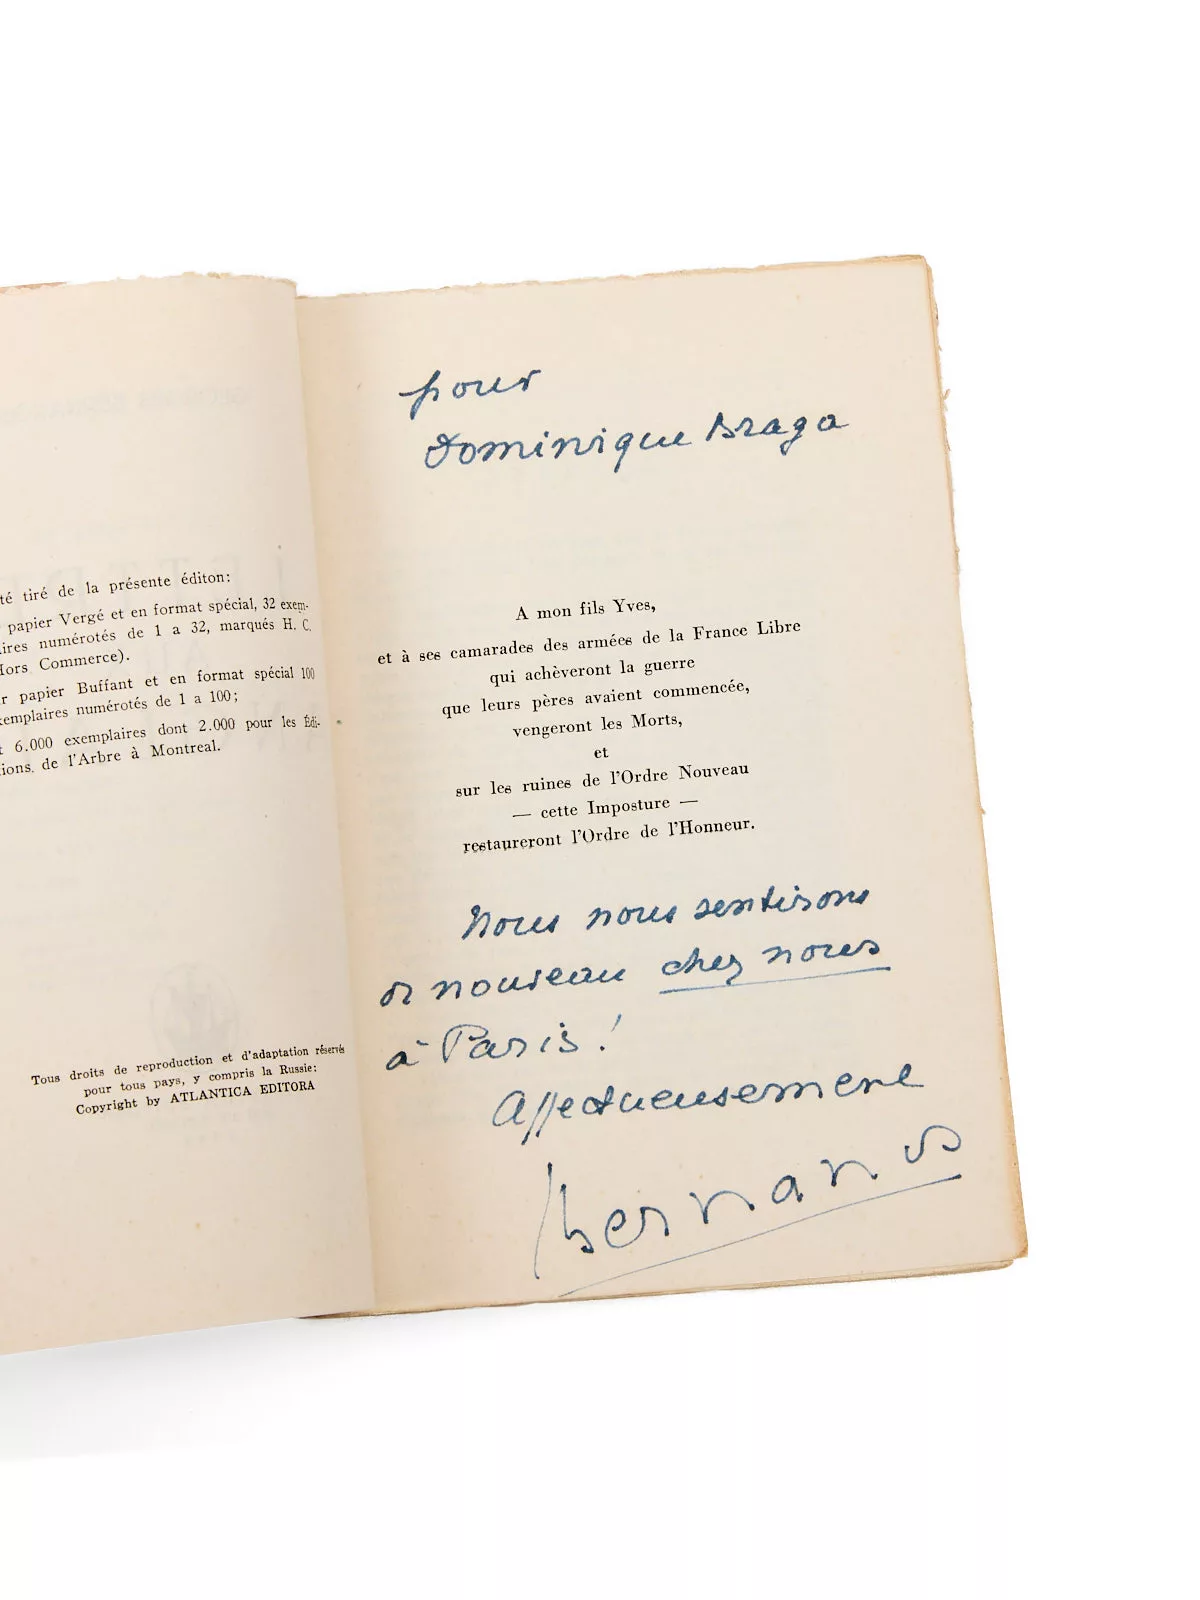 té tiré de la présente éditon:
papier Vergé et en format spécial, 32 exem-
ires numérotés de 1 a 32, marqués H. C.
Hors Commerce).
r papier Buffant et en format spécial 100
xemplaires numérotés de 1 a 100;
t 6.000 exemplaires dont 2.000 pour les Édi-
tions. de l'Arbre à Montreal.
Tous droits de reproduction et d'adaptation réservés
pour tous pays, y compris la Russie:
Copyright by ATLANTICA EDITORA
pour
Dominique Braga
A mon fils Yves,
et à ses camarades des armées de la France Libre
qui achèveront la guerre
que leurs pères avaient commencée,
vengeront les Morts,
et
sur les ruines de l'Ordre Nouveau
— cette Imposture —
restaureront l'Ordre de l'Honneur.
Nous nous sentirons
de nouveau chez nous
à Paris !
Affectueusement
Bernanos